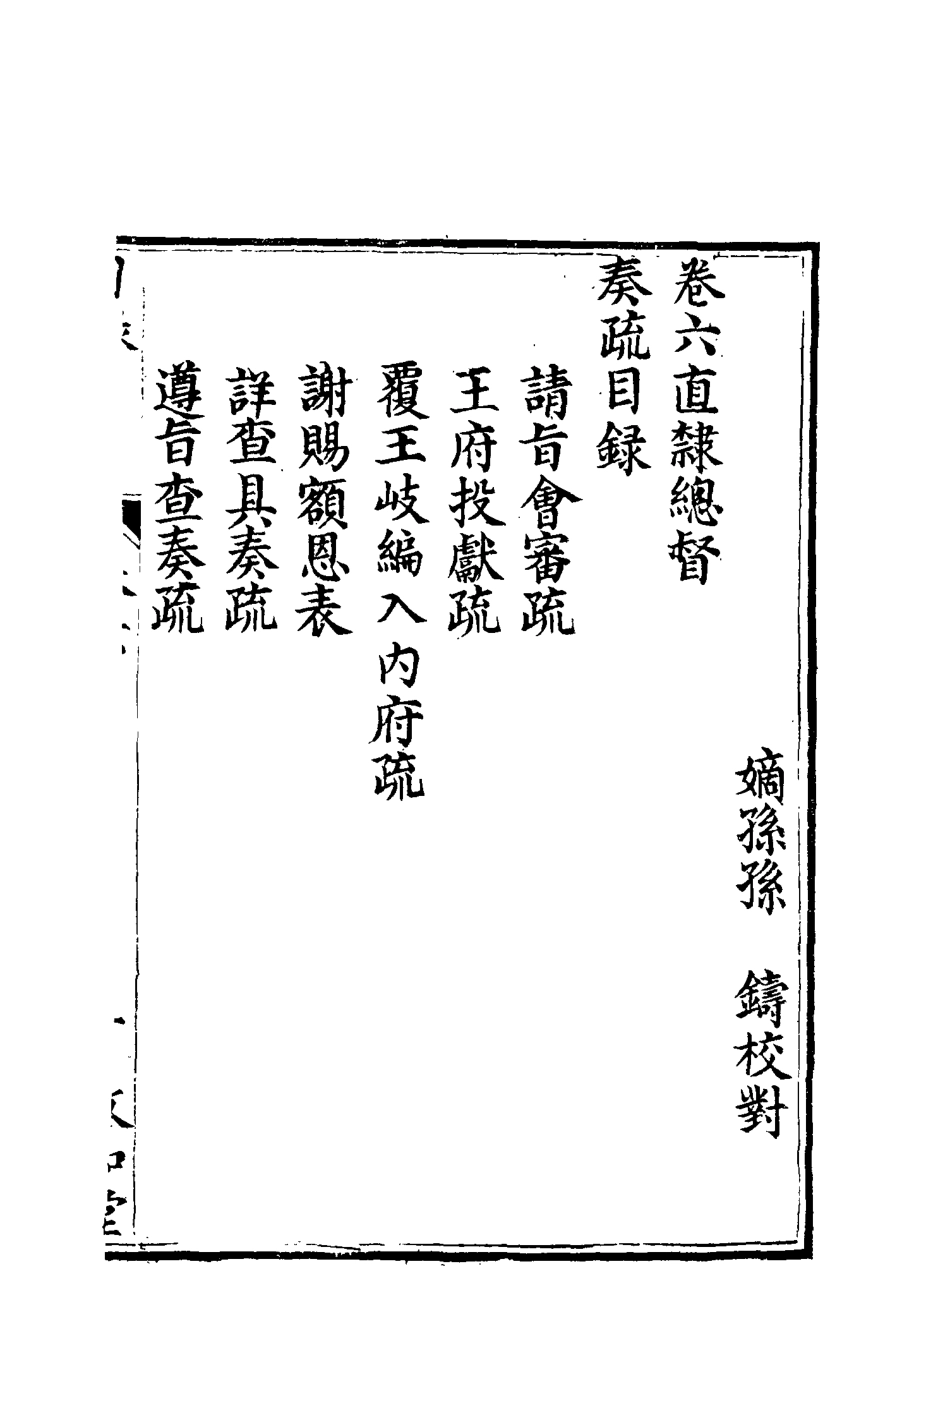 嫡孫孫　鑄校對
卷六直隸總督
奏疏目録
請旨會審疏
王府投獻疏
覆王岐編入内府疏
謝賜額恩表
詳查具奏疏
遵旨查奏疏